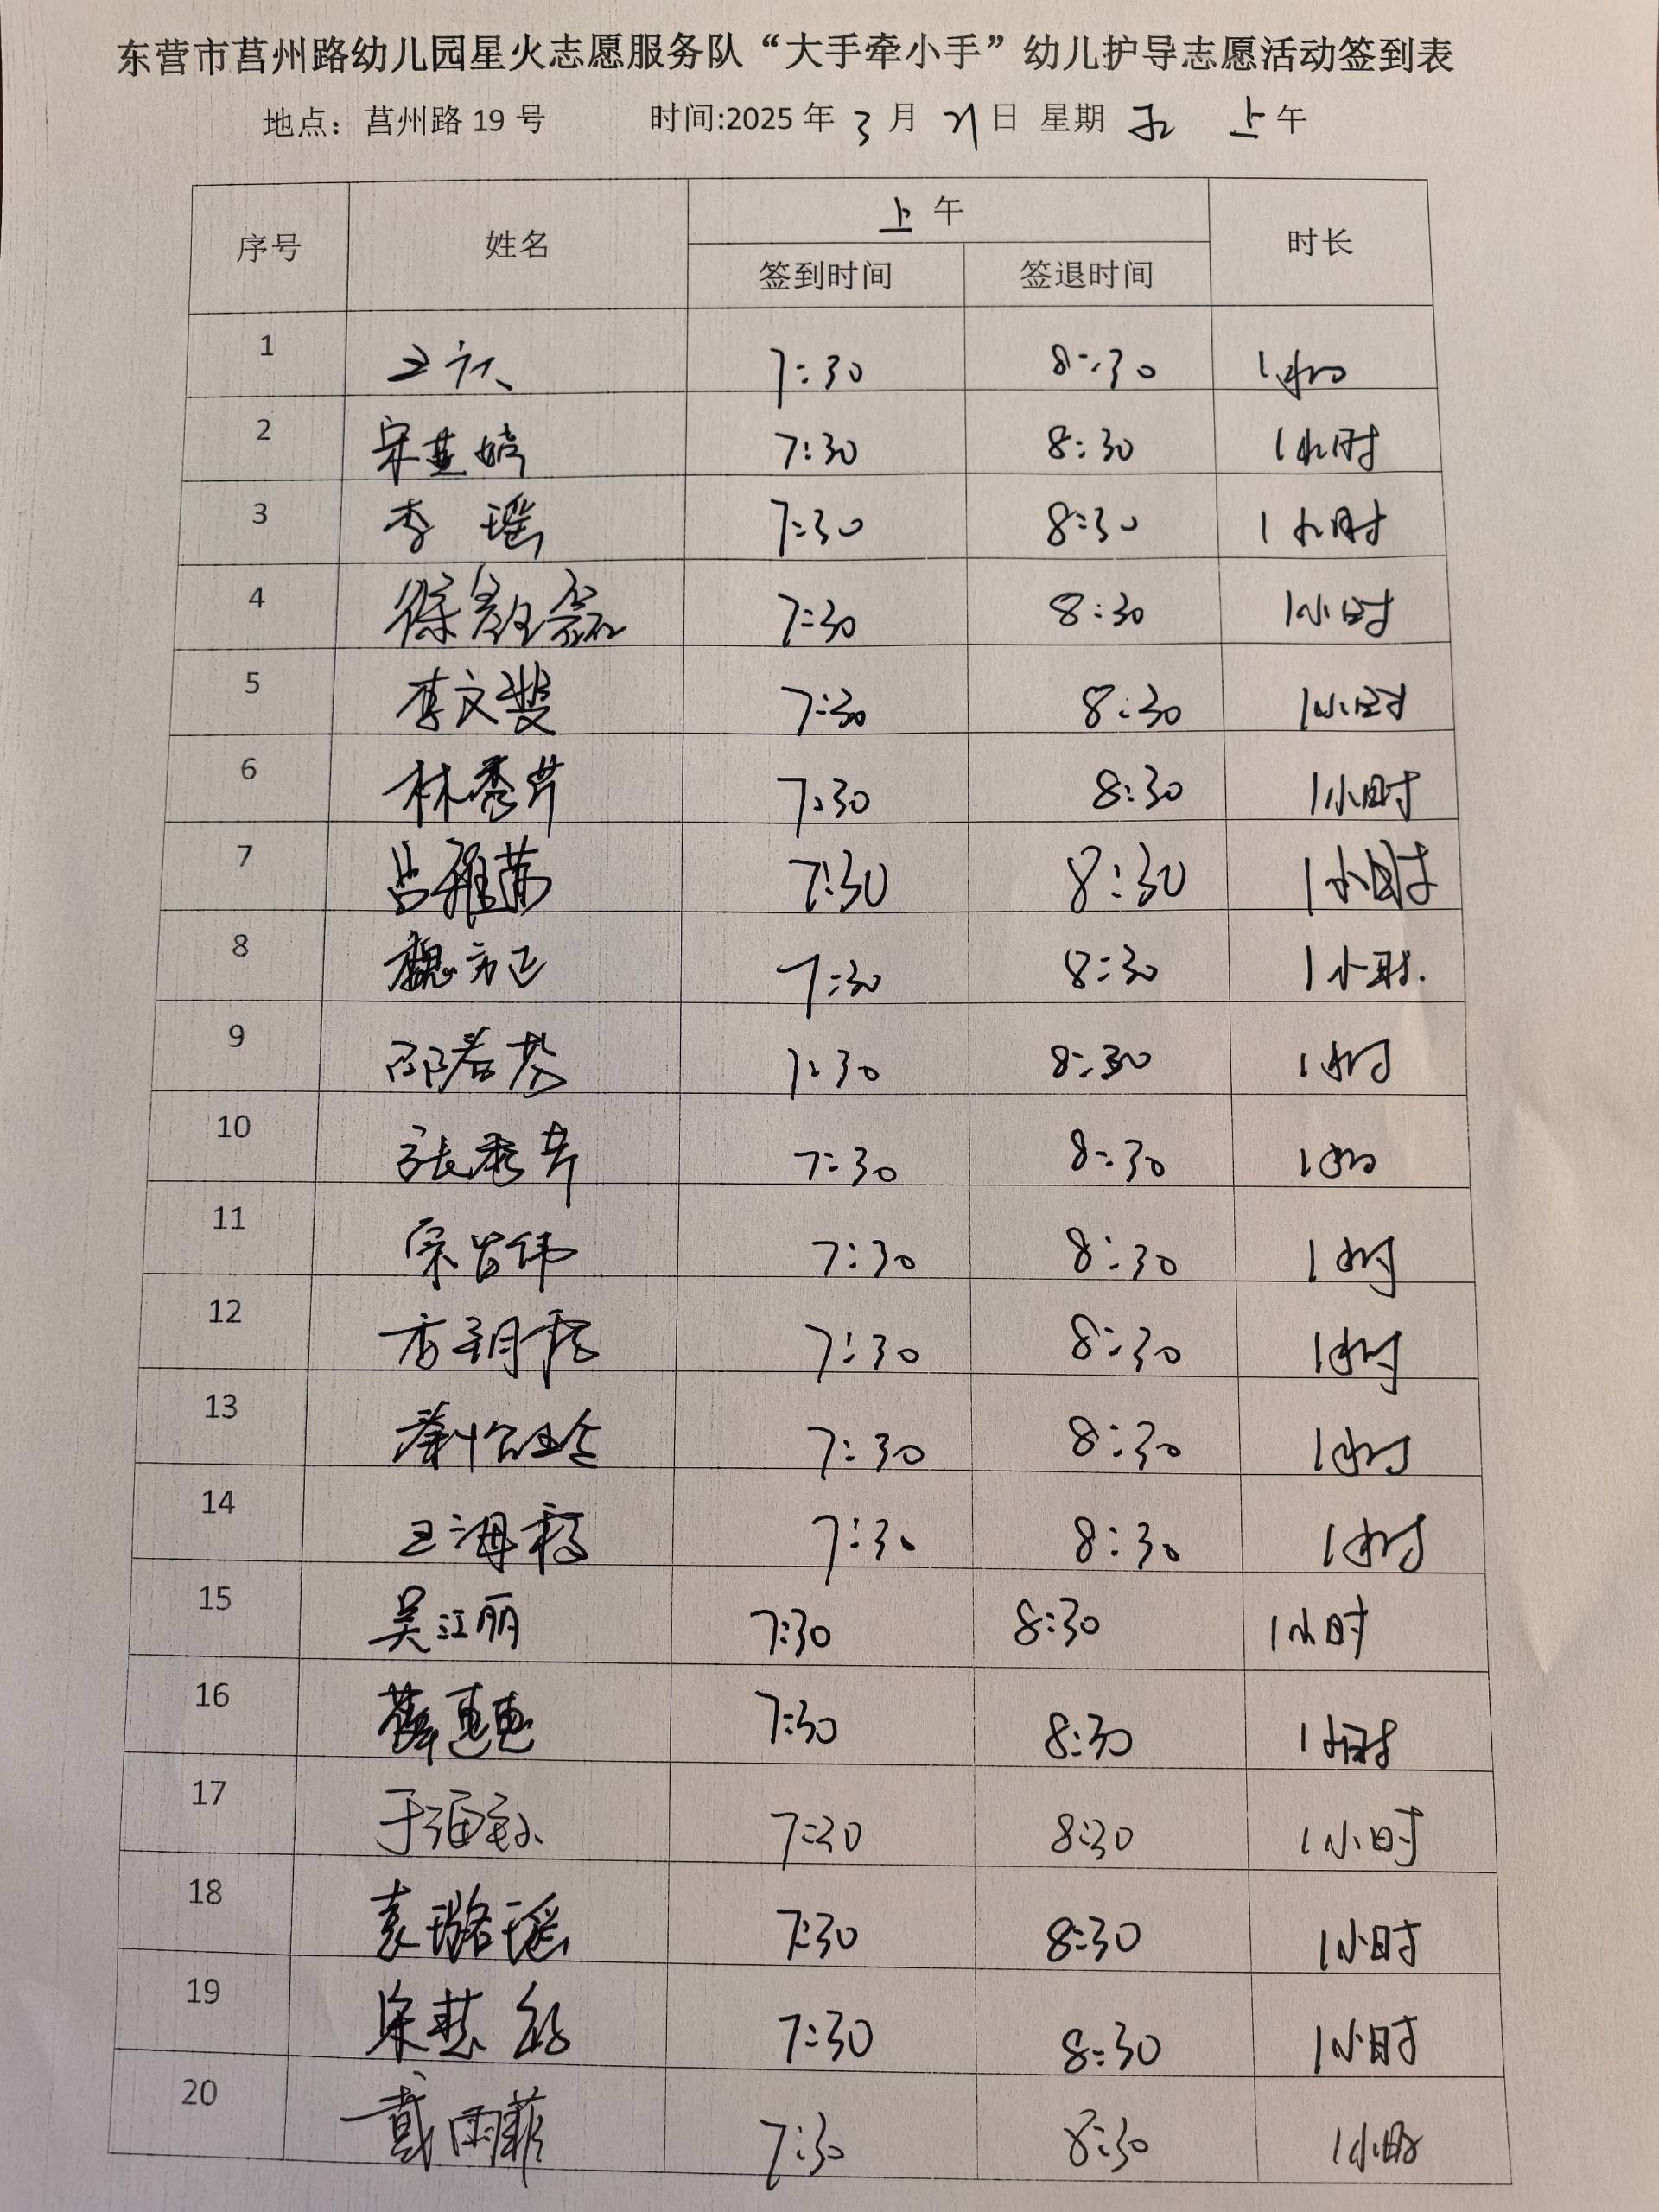 东营市莒州路幼儿园星火志愿服务队“大手牵小手”幼儿护导志愿活动签到表
地点：莒州路 19 号 时间:2025 年 3 月 21 日 星期 五 上午
序号 姓名 上午 时长
签到时间 签退时间
1 7:30 8:30 1小时
2 宋燕婷 7:30 8:30 1小时
3 李瑶 7:30 8:30 1小时
4 徐 7:30 8:30 1小时
5 李文斐 7:30 8:30 1小时
6 林秀芹 7:30 8:30 1小时
7 吕雅茹 7:30 8:30 1小时
8 魏方正 7:30 8:30 1小时.
9 邵春芬 7:30 8:30 1小时
10 张秀芹 7:30 8:30 1小时
11 宗 伟 7:30 8:30 1小时
12 7:30 8:30 1小时
13 7:30 8:30 1小时
14 王海 7:30 8:30 1小时
15 吴江丽 7:30 8:30 1小时
16 薛惠惠 7:30 8:30 1小时
17 于海 7:30 8:30 1小时
18 袁璐瑶 7:30 8:30 1小时
19 宋慧 7:30 8:30 1小时
20 戴雨菲 7:30 8:30 1小时